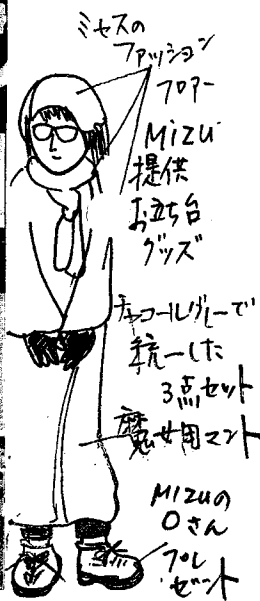 ミセスの
ファッション
フロアー
MIZU
提供
お立ち台
グッズ
チャコールグレーで
統一した
3点セット
魔女用マント
MIZUの
Oさん
プレ
ゼント